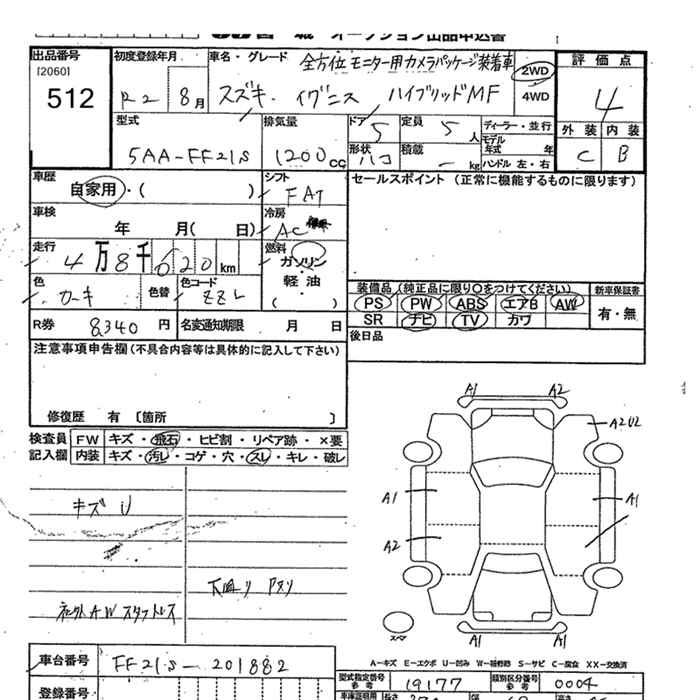 オークション出品申込書
出品番号 初度登録年月 車名・グレード 全方位モニター用カメラパッケージ装着車 2WD 評価点
[2060]
512 R2 8月 スズキ イグニス ハイブリッドMF 4WD 4
型式 排気量 ドア 5 定員 5人 ディーラー・並行 外装 内装
モデル年式 年
5AA-FF21S 1200cc 形状 ハコ 積載 -kg ハンドル 左・右 C B
車歴 自家用・( ) シフト FAT セールスポイント (正常に機能するものに限ります)
車検 年 月( 日) 冷房 AC
走行 4万8千620km 燃料 ガソリン・軽油( )
色 カーキ 色替 色コード ZZL 装備品 (純正品に限り○をつけてください) 新車保証書
PS PW ABS エアB AW 有・無
R券 8340円 名変通知期限 月 日 SR ナビ TV カワ
後日品
注意事項申告欄(不具合内容等は具体的に記入して下さい)
修復歴 有 〔箇所 〕
検査員 FW キズ・飛石・ヒビ割・リペア跡・×要
記入欄 内装 キズ・汚レ・コゲ・穴・スレ・キレ・破レ
A1 A2
A2U2
A1 A1
A2
キズ U
下回り
スペア
A1 A1
A-キズ E-エクボ U-凹み W-補修跡 S-サビ C-腐食 XX-交換済
車台番号 FF21S-201882
型式指定番号 参考 19177 類別区分番号 参考 0004
登録番号 車庫証明用 長さ